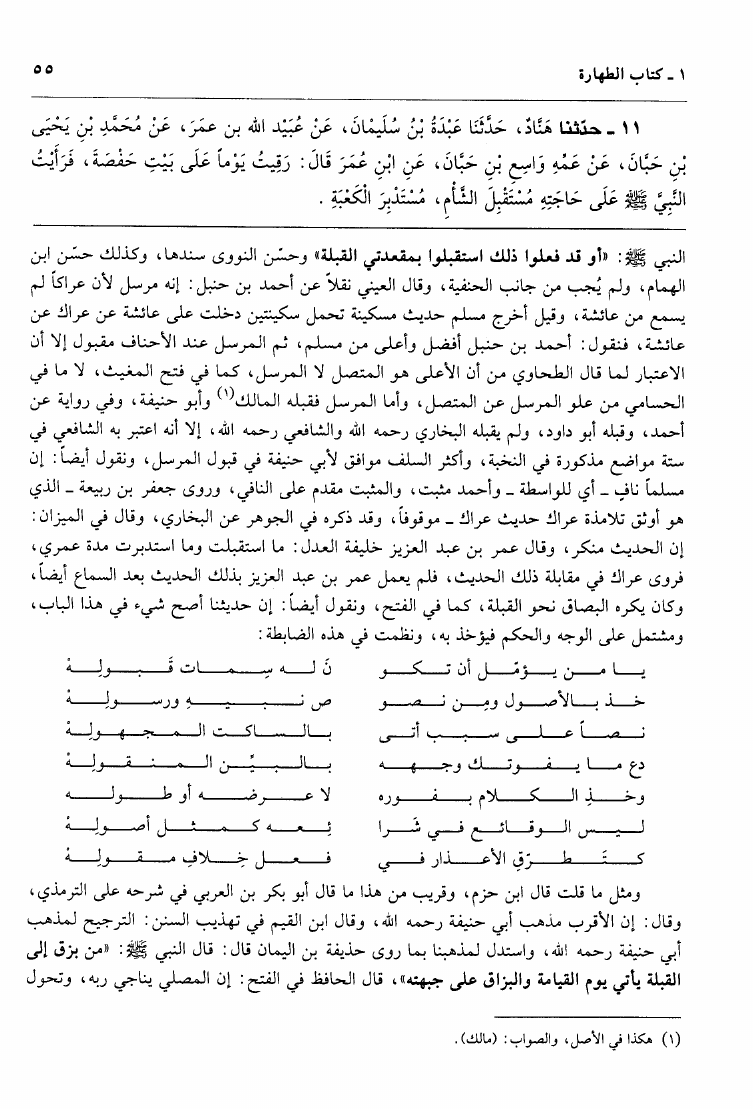 ١ - كتاب الطهارة ٥٥
١١ - حدّثنا هَنَّادٌ، حَدَّثَنَا عَبْدَةُ بْنُ سُلَيْمَانَ، عَنْ عُبَيْدِ الله بن عمَرَ، عَنْ مُحَمَّدِ بْنِ يَحْيَى
بْنِ حَبَّانَ، عَنْ عَمِّهِ وَاسِعِ بْنِ حَبَّانَ، عَنِ ابْنِ عُمَرَ قَالَ: رَقِيتُ يَوْماً عَلَى بَيْتِ حَفْصَةَ، فَرَأَيْتُ
النَّبِيَّ ﷺ عَلَى حَاجَتِهِ مُسْتَقْبِلَ الشَّأْمِ، مُسْتَدْبِرَ الْكَعْبَةِ.
النبي ﷺ: «أو قد فعلوا ذلك استقبلوا بمقعدتي القبلة» وحسّن النووى سندها، وكذلك حسّن ابن
الهمام، ولم يُجب من جانب الحنفية، وقال العيني نقلاً عن أحمد بن حنبل: إنه مرسل لأن عراكاً لم
يسمع من عائشة، وقيل أخرج مسلم حديث مسكينة تحمل سكينتين دخلت على عائشة عن عراك عن
عائشة، فنقول: أحمد بن حنبل أفضل وأعلى من مسلم، ثم المرسل عند الأحناف مقبول إلا أن
الاعتبار لما قال الطحاوي من أن الأعلى هو المتصل لا المرسل، كما في فتح المغيث، لا ما في
الحسامي من علو المرسل عن المتصل، وأما المرسل فقبله المالك(١) وأبو حنيفة، وفي رواية عن
أحمد، وقبله أبو داود، ولم يقبله البخاري رحمه الله والشافعي رحمه الله، إلا أنه اعتبر به الشافعي في
ستة مواضع مذكورة في النخبة، وأكثر السلف موافق لأبي حنيفة في قبول المرسل، ونقول أيضاً: إن
مسلماً نافٍ - أي للواسطة - وأحمد مثبت، والمثبت مقدم على النافي، وروى جعفر بن ربيعة - الذي
هو أوثق تلامذة عراك حديث عراك - موقوفاً، وقد ذكره في الجوهر عن البخاري، وقال في الميزان:
إن الحديث منكر، وقال عمر بن عبد العزيز خليفة العدل: ما استقبلت وما استدبرت مدة عمري،
فروى عراك في مقابلة ذلك الحديث، فلم يعمل عمر بن عبد العزيز بذلك الحديث بعد السماع أيضاً،
وكان يكره البصاق نحو القبلة، كما في الفتح، ونقول أيضاً: إن حديثنا أصح شيء في هذا الباب،
ومشتمل على الوجه والحكم فيؤخذ به، ونظمت في هذه الضابطة:
يا من يؤمّل أن تكو نَ له سِمات قَبولِهْ
خذ بالأصول ومِن نصو ص نبيه ورسولِهْ
نصاً على سبب أتى بالساكت المجهولِهْ
دع ما يفوتك وجهه بالبيِّن المنقولِهْ
وخذِ الكلام بغوره لا عرضه أو طولِه
ليس الوقائع في شَرا ئِعه كمثل أصولِهْ
كتَطرّقِ الأعذار في فعل خِلافِ مقولِهْ
ومثل ما قلت قال ابن حزم، وقريب من هذا ما قال أبو بكر بن العربي في شرحه على الترمذي،
وقال: إن الأقرب مذهب أبي حنيفة رحمه الله، وقال ابن القيم في تهذيب السنن: الترجيح لمذهب
أبي حنيفة رحمه الله، واستدل لمذهبنا بما روى حذيفة بن اليمان قال: قال النبي ﷺ: «من بزق إلى
القبلة يأتي يوم القيامة والبزاق على جبهته»، قال الحافظ في الفتح: إن المصلي يناجي ربه، وتحول
(١) هكذا في الأصل، والصواب: (مالك).